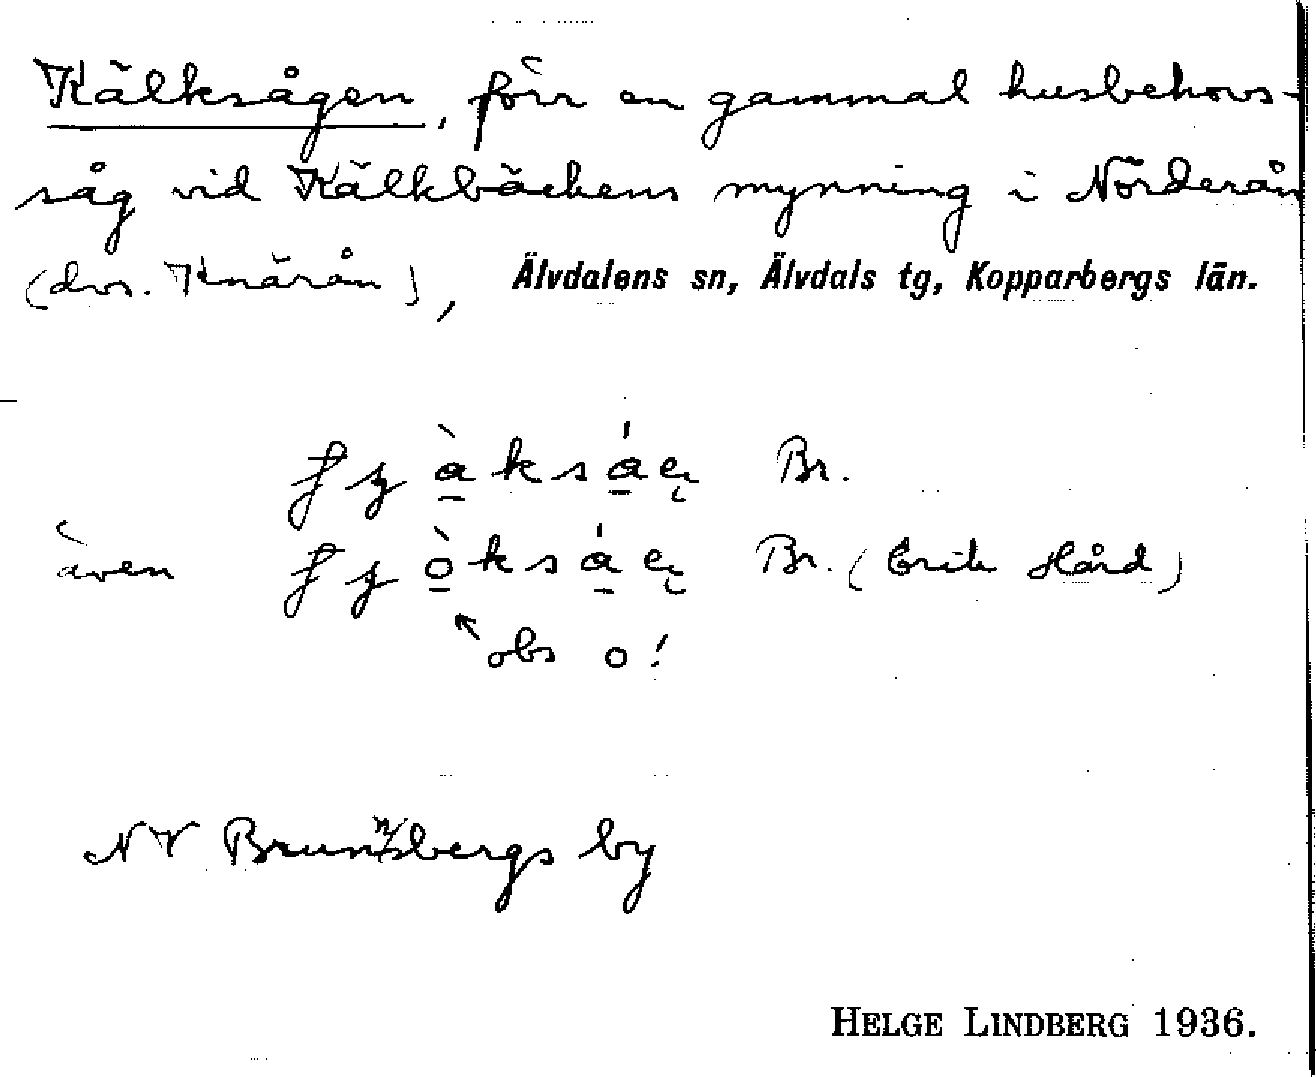 Kälksågen, förr en gammal husbehovs-
såg vid Kälkbäckens mynning i Norderån
(dvs. Knärån), Älvdalens sn, Älvdals tg, Kopparbergs län.
Br.
även Br. (Erik Hård)
obs o!
NV Brunnsbergs by
HELGE LINDBERG 1936.